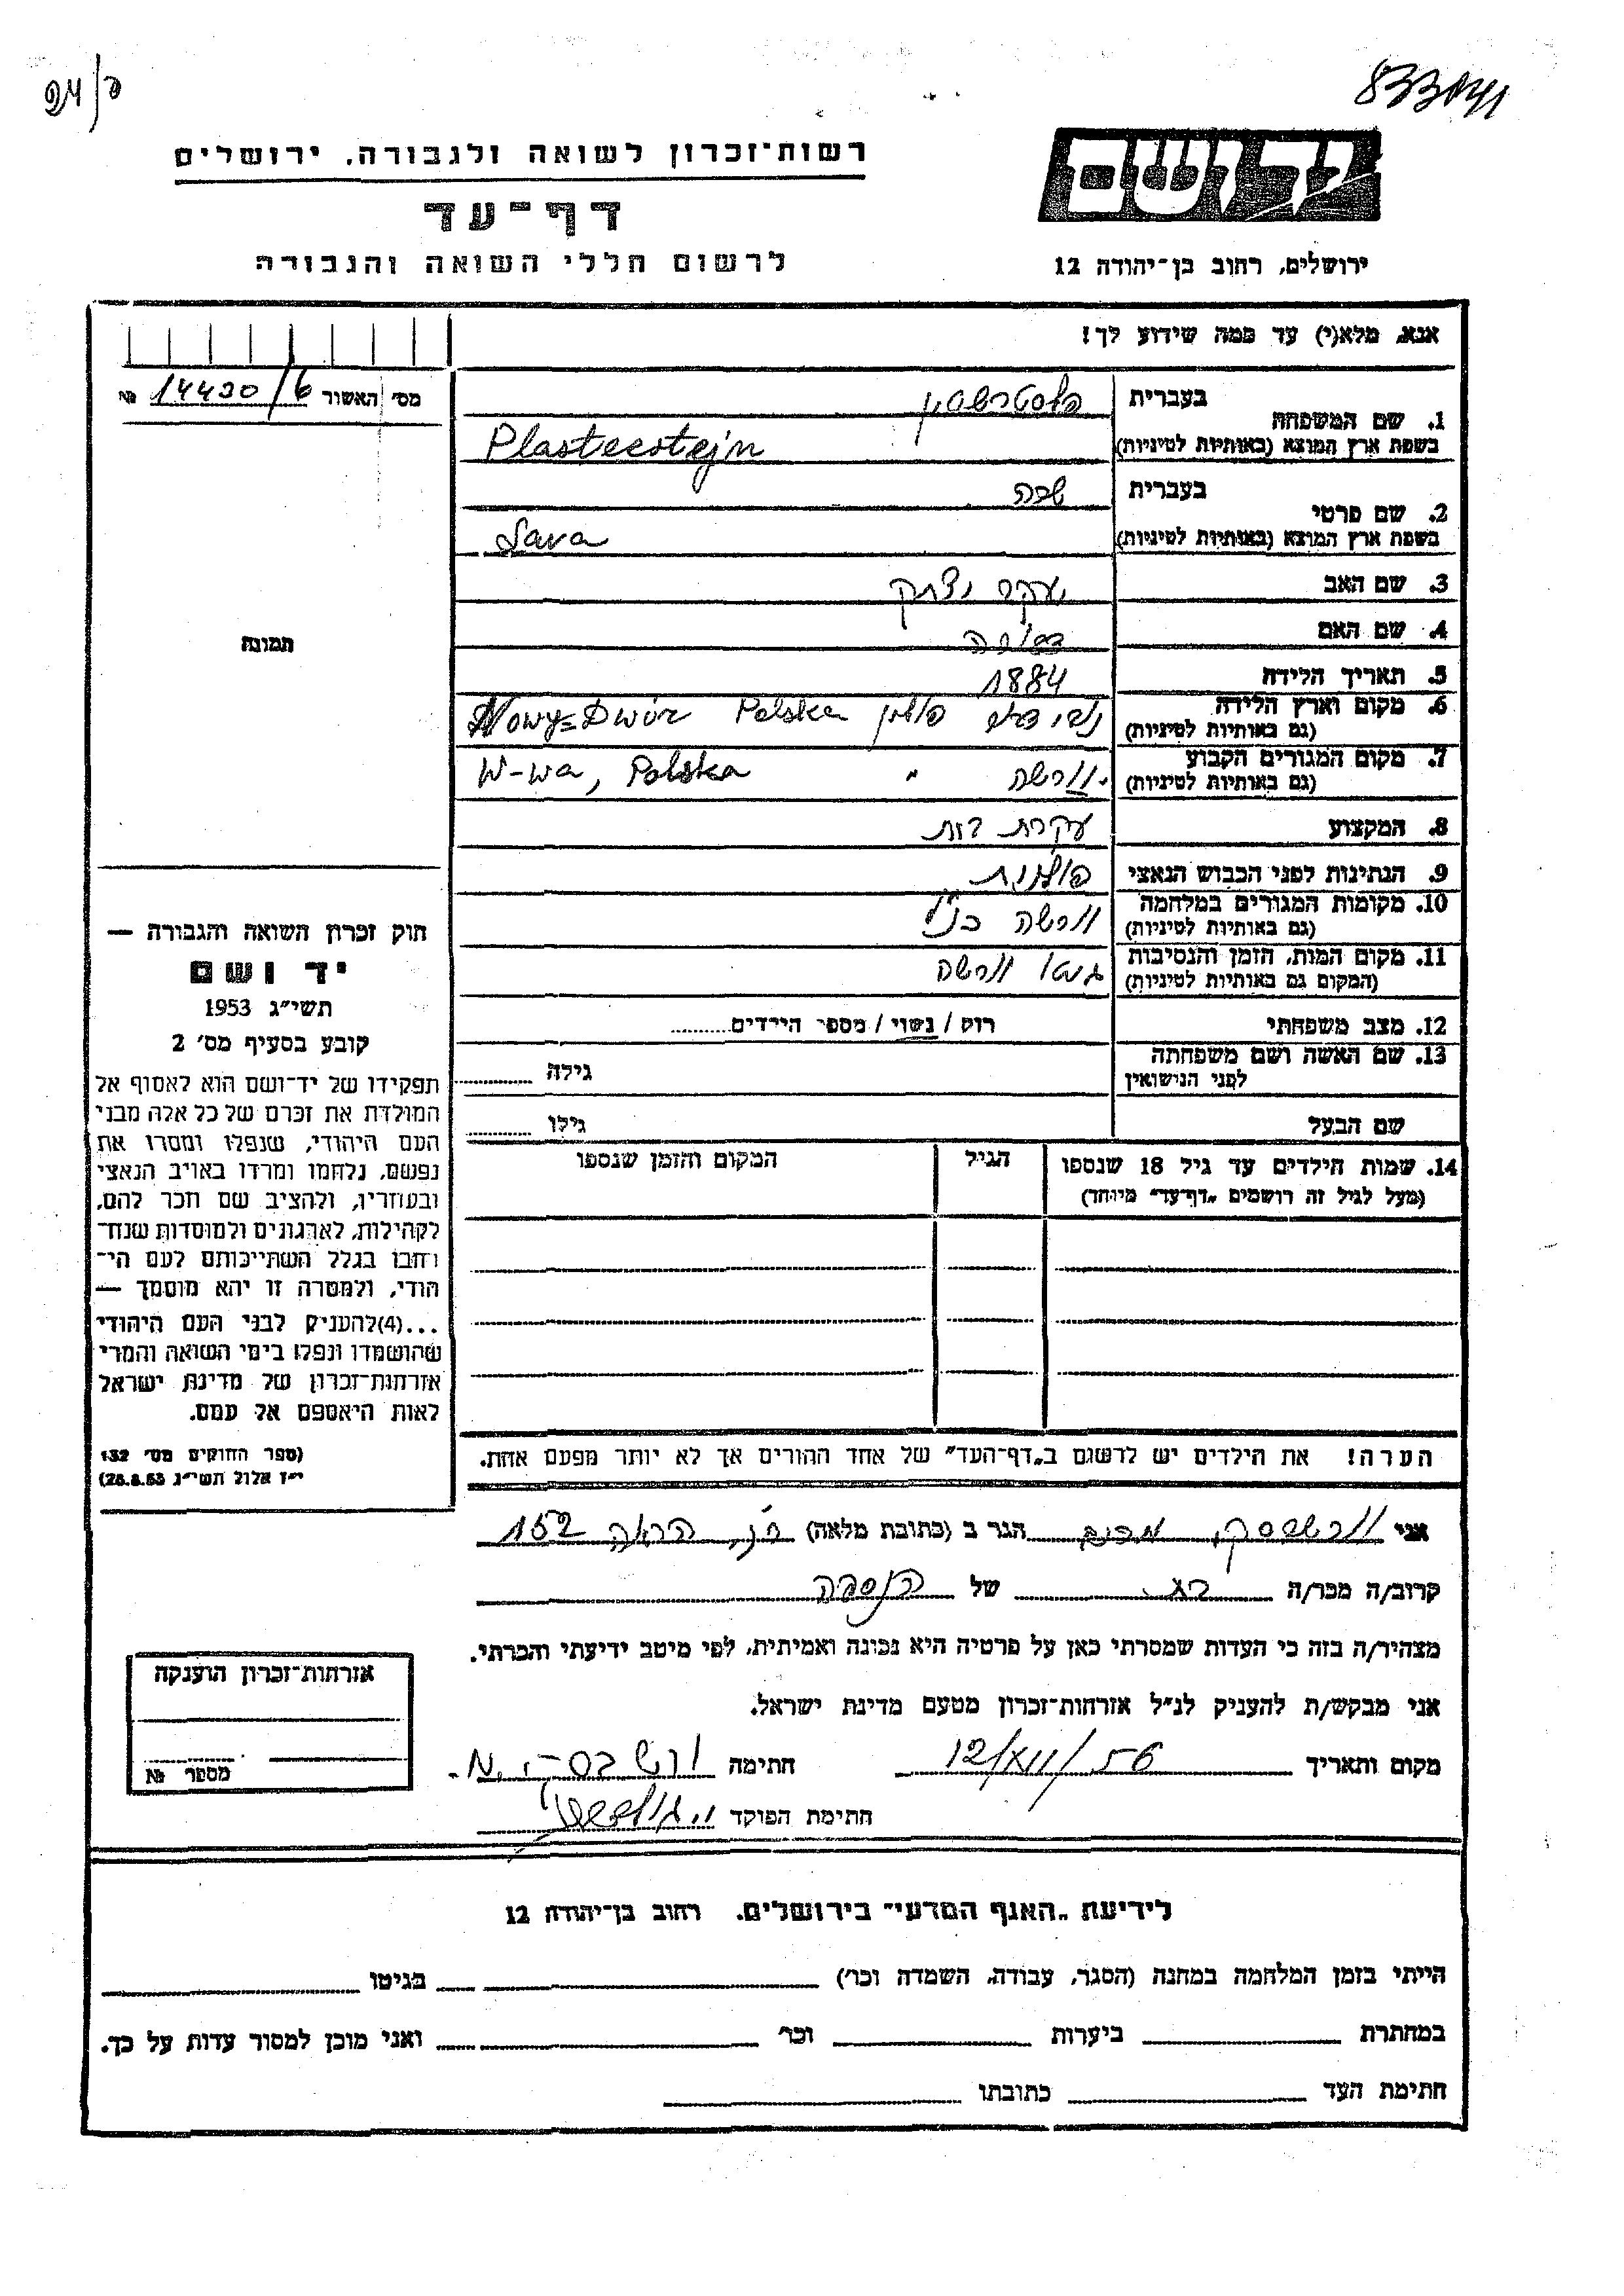 833041
רשות־זכרון לשואה ולגבורה, ירושלים
יד ושם
דף־עד
לרשום חללי השואה והגבורה
ירושלים, רחוב בן־יהודה 12
אנא, מלא(י) עד כמה שידוע לך!
מס׳ האשור 14430/6 №
1. שם המשפחה
בעברית פלסטרשטיין
בשפת ארץ המוצא (באותיות לטיניות) Plasterstejn
2. שם פרטי
בעברית שרה
בשפת ארץ המוצא (באותיות לטיניות) Sara
3. שם האב יעקב יצחק
4. שם האם דבורה
5. תאריך הלידה 1884
6. מקום וארץ הלידה נובי דבור פולין Nowy=Dwór Polska
(גם באותיות לטיניות)
7. מקום המגורים הקבוע וורשה " W-wa, Polska
(גם באותיות לטיניות)
8. המקצוע עקרת בית
9. הנתינות לפני הכבוש הנאצי פולנית
10. מקומות המגורים במלחמה וורשה כנ"ל
(גם באותיות לטיניות)
11. מקום המות, הזמן והנסיבות גיטו וורשה
(המקום גם באותיות לטיניות)
12. מצב משפחתי רוק / נשוי / מספר הילדים
13. שם האשה ושם משפחתה
לפני הנישואין גילה
שם הבעל גילו
14. שמות הילדים עד גיל 18 שנספו הגיל המקום והזמן שנספו
(מעל לגיל זה רושמים „דף־עד" מיוחד)
הערה! את הילדים יש לרשום ב„דף־העד" של אחד ההורים אך לא יותר מפעם אחת.
תמונה
חוק זכרון השואה והגבורה —
יד ושם
תשי״ג 1953
קובע בסעיף מס׳ 2
תפקידו של יד־ושם הוא לאסוף אל
המולדת את זכרם של כל אלה מבני
העם היהודי, שנפלו ומסרו את
נפשם, נלחמו ומרדו באויב הנאצי
ובעוזריו, ולהציב שם וזכר להם,
לקהילות, לארגונים ולמוסדות שנח־
רחבו בגלל השתייכותם לעם הי־
הודי, ולמטרה זו יהא מוסמך —
...(4)להעניק לבני העם היהודי
שהושמדו ונפלו בימי השואה והמרי
אזרחות־זכרון של מדינת ישראל
לאות היאספם אל עמם.
(ספר החוקים מס׳ 132
י״ז אלול תשי״ג 28.8.53)
אני וורשבסקי מרים הגר ב (כתובת מלאה) הרא"ה 152
קרוב/ה מכר/ה בת של הנספה
מצהיר/ה בזה כי העדות שמסרתי כאן על פרטיה היא נכונה ואמיתית, לפי מיטב ידיעתי והכרתי.
אני מבקש/ת להעניק לנ״ל אזרחות־זכרון מטעם מדינת ישראל.
מקום ותאריך 12/XII/56 חתימה ורשבסקי מ.
חתימת הפוקד
אזרחות־זכרון הוענקה
מספר №
לידיעת „האגף המדעי" בירושלים, רחוב בן־יהודה 12
הייתי בזמן המלחמה במחנה (הסגר, עבודה, השמדה וכר׳) בגיטו
במחתרת ביערות וכר׳ ואני מוכן למסור עדות על כך.
חתימת העד כתובתו